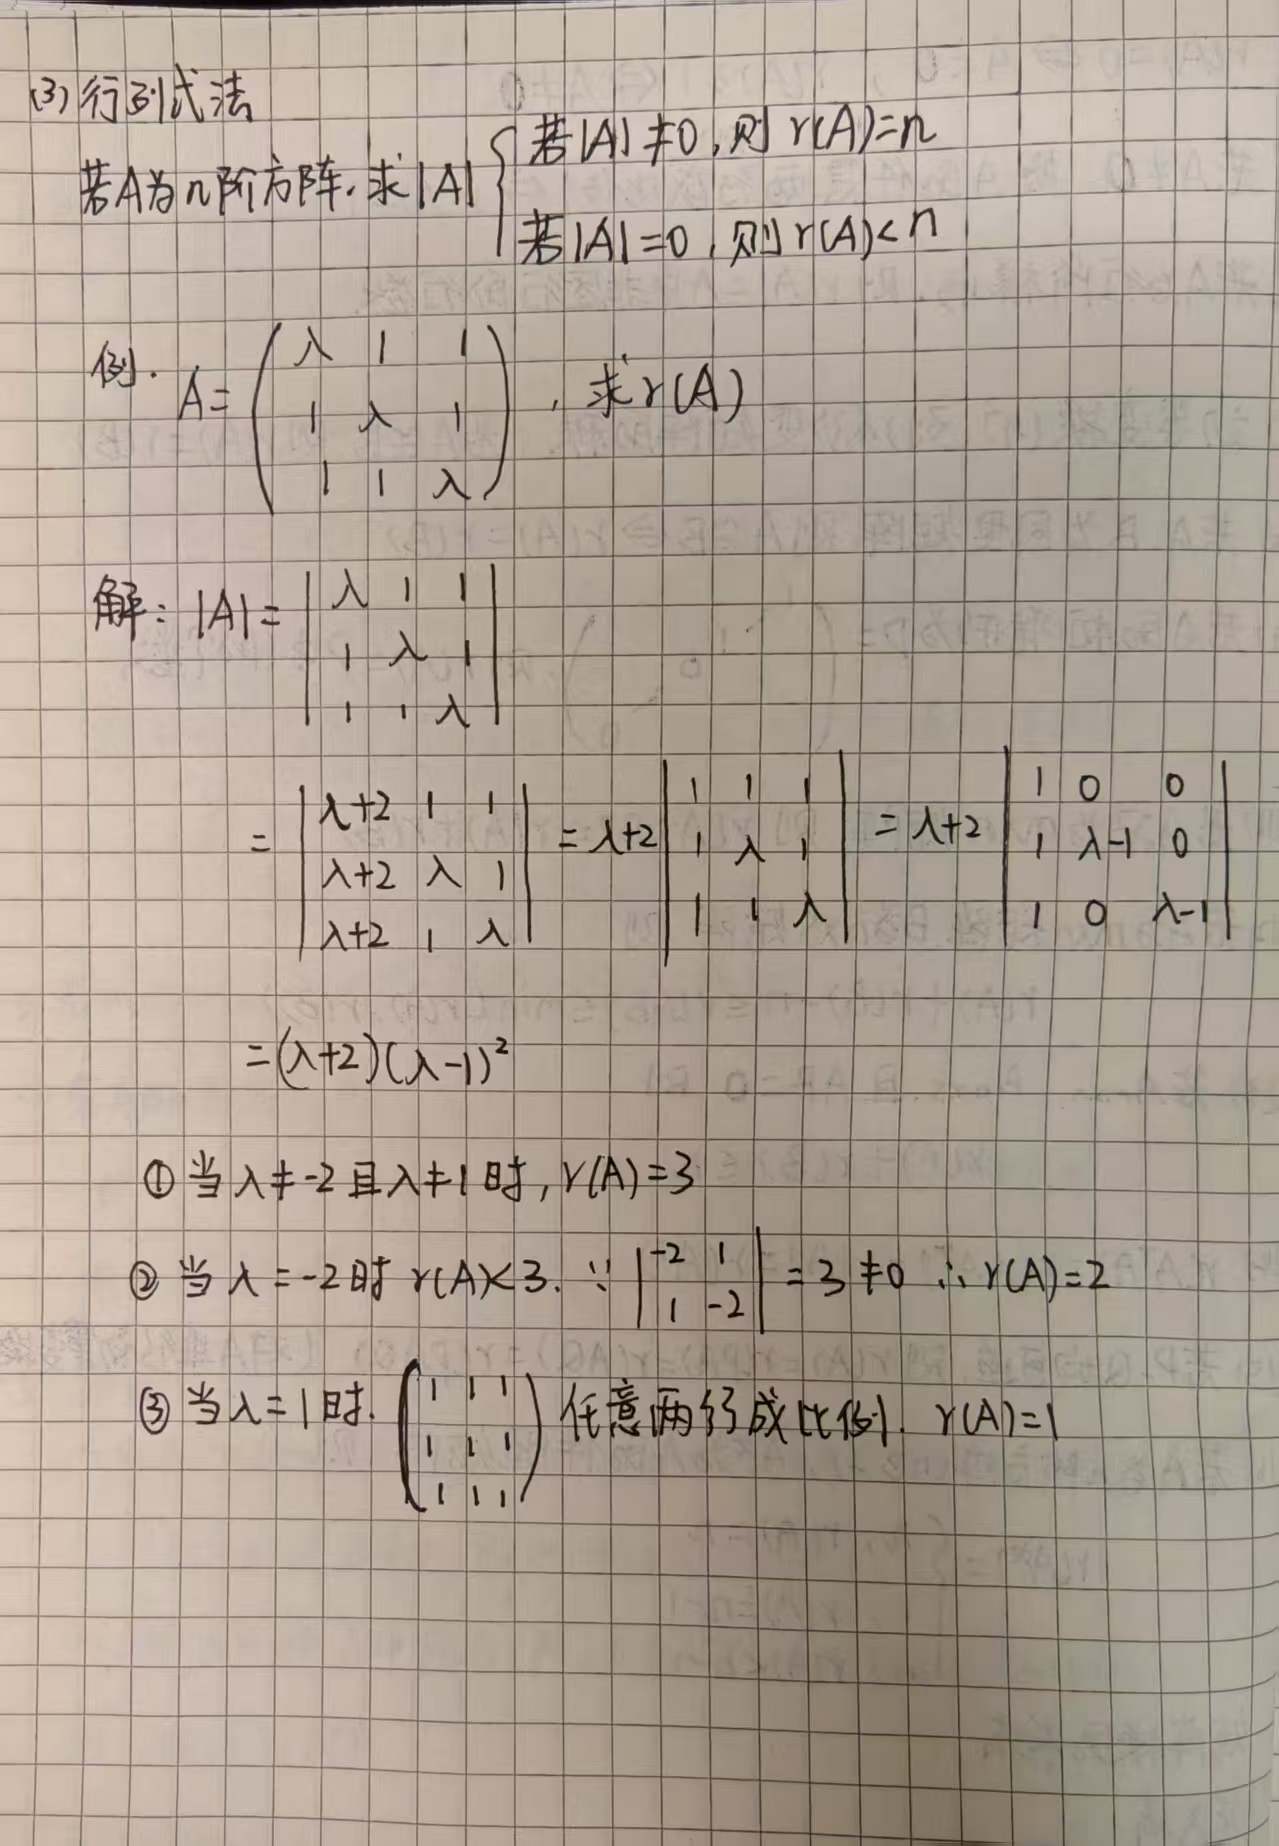 (3) 行列式法
若A为n阶方阵. 求|A| { 若|A|≠0, 则 r(A)=n
若|A|=0, 则 r(A)<n
例. A= ( λ 1 1
1 λ 1
1 1 λ ) , 求r(A)
解: |A|= | λ 1 1 |
| 1 λ 1 |
| 1 1 λ |
= | λ+2 1 1 | = λ+2 | 1 1 1 | = λ+2 | 1 0 0 |
| λ+2 λ 1 | | 1 λ 1 | | 1 λ-1 0 |
| λ+2 1 λ | | 1 1 λ | | 1 0 λ-1 |
=(λ+2)(λ-1)²
① 当λ≠-2且λ≠1时, r(A)=3
② 当λ=-2时 r(A)<3. ∵ | -2 1 | = 3≠0 ∴ r(A)=2
| 1 -2 |
③ 当λ=1时. ( 1 1 1
1 1 1
1 1 1 ) 任意两行成比例. r(A)=1